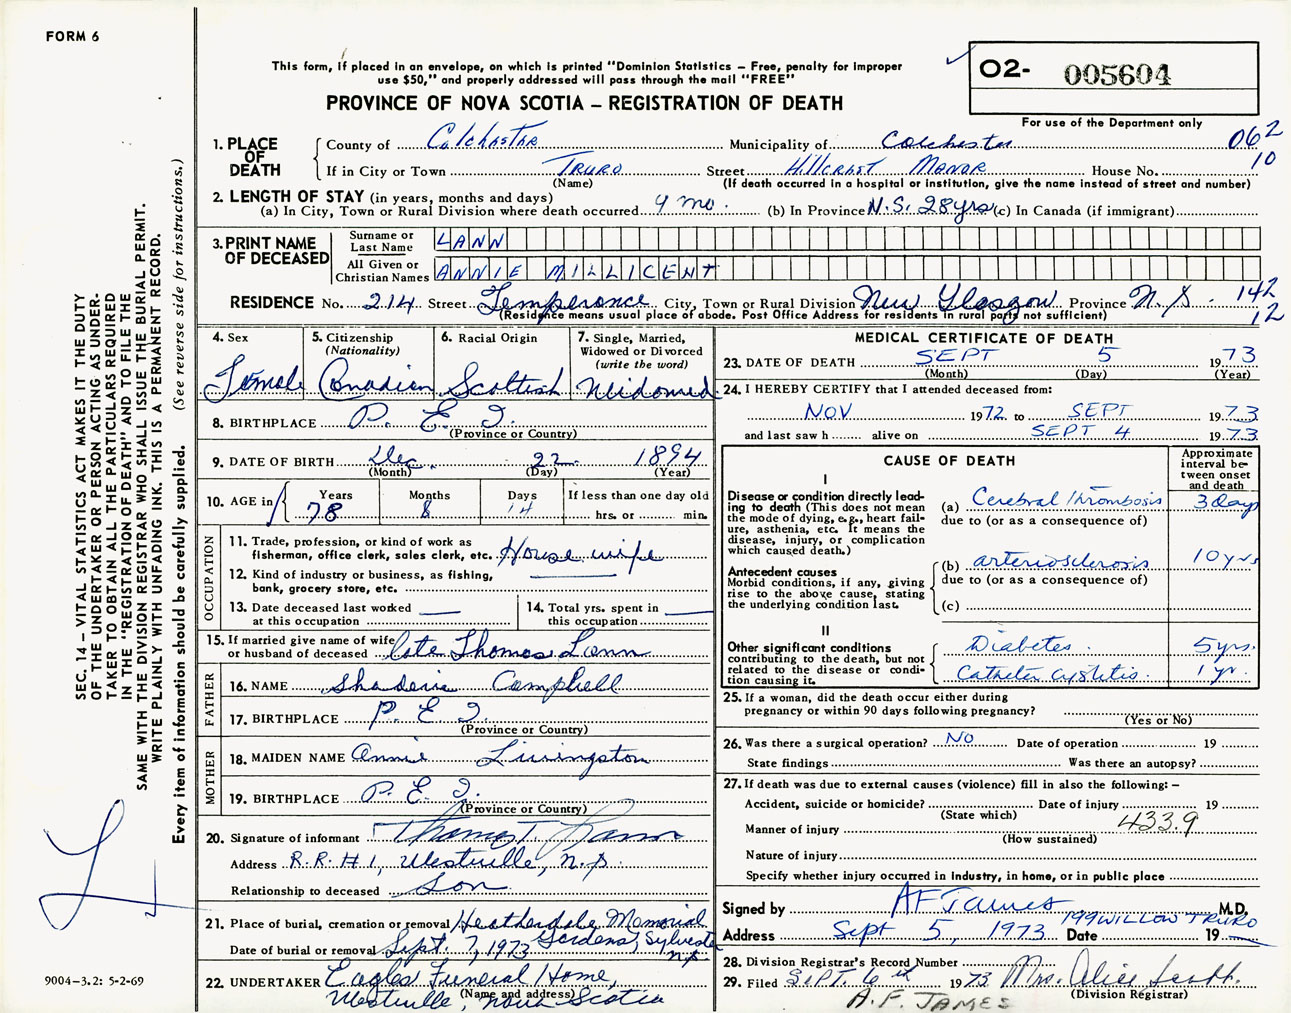 FORM 6
This form, if placed in an envelope, on which is printed "Dominion Statistics – Free, penalty for improper
use $50," and properly addressed will pass through the mail "FREE"
O2- 005604
PROVINCE OF NOVA SCOTIA – REGISTRATION OF DEATH
For use of the Department only
1. PLACE OF DEATH
County of Colchester Municipality of Colchester 062
If in City or Town TRURO Street Hillcrest Manor House No. 10
(Name) (If death occurred in a hospital or institution, give the name instead of street and number)
2. LENGTH OF STAY (in years, months and days)
(a) In City, Town or Rural Division where death occurred 9 mo. (b) In Province N.S. 28 yrs (c) In Canada (if immigrant)
3. PRINT NAME OF DECEASED
Surname or Last Name LANN
All Given or Christian Names ANNIE MILLICENT
RESIDENCE No. 214 Street Temperance City, Town or Rural Division New Glasgow Province N.S. 142
(Residence means usual place of abode. Post Office Address for residents in rural parts not sufficient) 12
4. Sex Female
5. Citizenship (Nationality) Canadian
6. Racial Origin Scottish
7. Single, Married, Widowed or Divorced (write the word) Widowed
8. BIRTHPLACE P. E. I.
(Province or Country)
9. DATE OF BIRTH Dec. 22 1894
(Month) (Day) (Year)
10. AGE in Years 78 Months 8 Days 14 If less than one day old
hrs. or min.
OCCUPATION
11. Trade, profession, or kind of work as
fisherman, office clerk, sales clerk, etc. House wife
12. Kind of industry or business, as fishing,
bank, grocery store, etc.
13. Date deceased last worked
at this occupation
14. Total yrs. spent in
this occupation
15. If married give name of wife
or husband of deceased late Thomas Lann
FATHER
16. NAME Campbell
17. BIRTHPLACE P. E. I.
(Province or Country)
MOTHER
18. MAIDEN NAME Annie Livingston
19. BIRTHPLACE P. E. I.
(Province or Country)
20. Signature of informant Thomas T. Lann
Address R.R. # 1, Westville, N.S.
Relationship to deceased Son
21. Place of burial, cremation or removal Heatherdale Memorial
Gardens, Sylvester
Date of burial or removal Sept. 7, 1973 N.S.
22. UNDERTAKER Eagles Funeral Home,
(Name and address)
Westville, Nova Scotia
MEDICAL CERTIFICATE OF DEATH
23. DATE OF DEATH SEPT 5 1973
(Month) (Day) (Year)
24. I HEREBY CERTIFY that I attended deceased from:
NOV 1972 to SEPT 1973
and last saw h alive on SEPT 4 1973
CAUSE OF DEATH
Approximate interval between onset and death
I
Disease or condition directly leading to death (This does not mean the mode of dying, e.g., heart failure, asthenia, etc. It means the disease, injury, or complication which caused death.)
(a) Cerebral Thrombosis 3 days
due to (or as a consequence of)
Antecedent causes
Morbid conditions, if any, giving rise to the above cause, stating the underlying condition last.
(b) arteriosclerosis 10 yrs
due to (or as a consequence of)
(c)
II
Other significant conditions
contributing to the death, but not related to the disease or condition causing it.
Diabetes. 5 yrs.
Catheter cystitis. 1 yr.
25. If a woman, did the death occur either during
pregnancy or within 90 days following pregnancy?
(Yes or No)
26. Was there a surgical operation? No Date of operation 19
State findings Was there an autopsy?
27. If death was due to external causes (violence) fill in also the following: –
Accident, suicide or homicide? Date of injury 19
(State which)
Manner of injury 433.9
(How sustained)
Nature of injury
Specify whether injury occurred in industry, in home, or in public place
Signed by AF James M.D.
199 WILLOW TRURO
Address Sept 5, 1973 Date 19
28. Division Registrar's Record Number
29. Filed SEPT. 6th 1973 Mrs. Alice Scott.
(Division Registrar)
A.F. JAMES
SEC. 14 – VITAL STATISTICS ACT MAKES IT THE DUTY
OF THE UNDERTAKER OR PERSON ACTING AS UNDER-
TAKER TO OBTAIN ALL THE PARTICULARS REQUIRED
IN THE "REGISTRATION OF DEATH" AND TO FILE THE
SAME WITH THE DIVISION REGISTRAR WHO SHALL ISSUE THE BURIAL PERMIT.
WRITE PLAINLY WITH UNFADING INK. THIS IS A PERMANENT RECORD.
Every item of information should be carefully supplied. (See reverse side for instructions.)
L
9004-3.2: 5-2-69